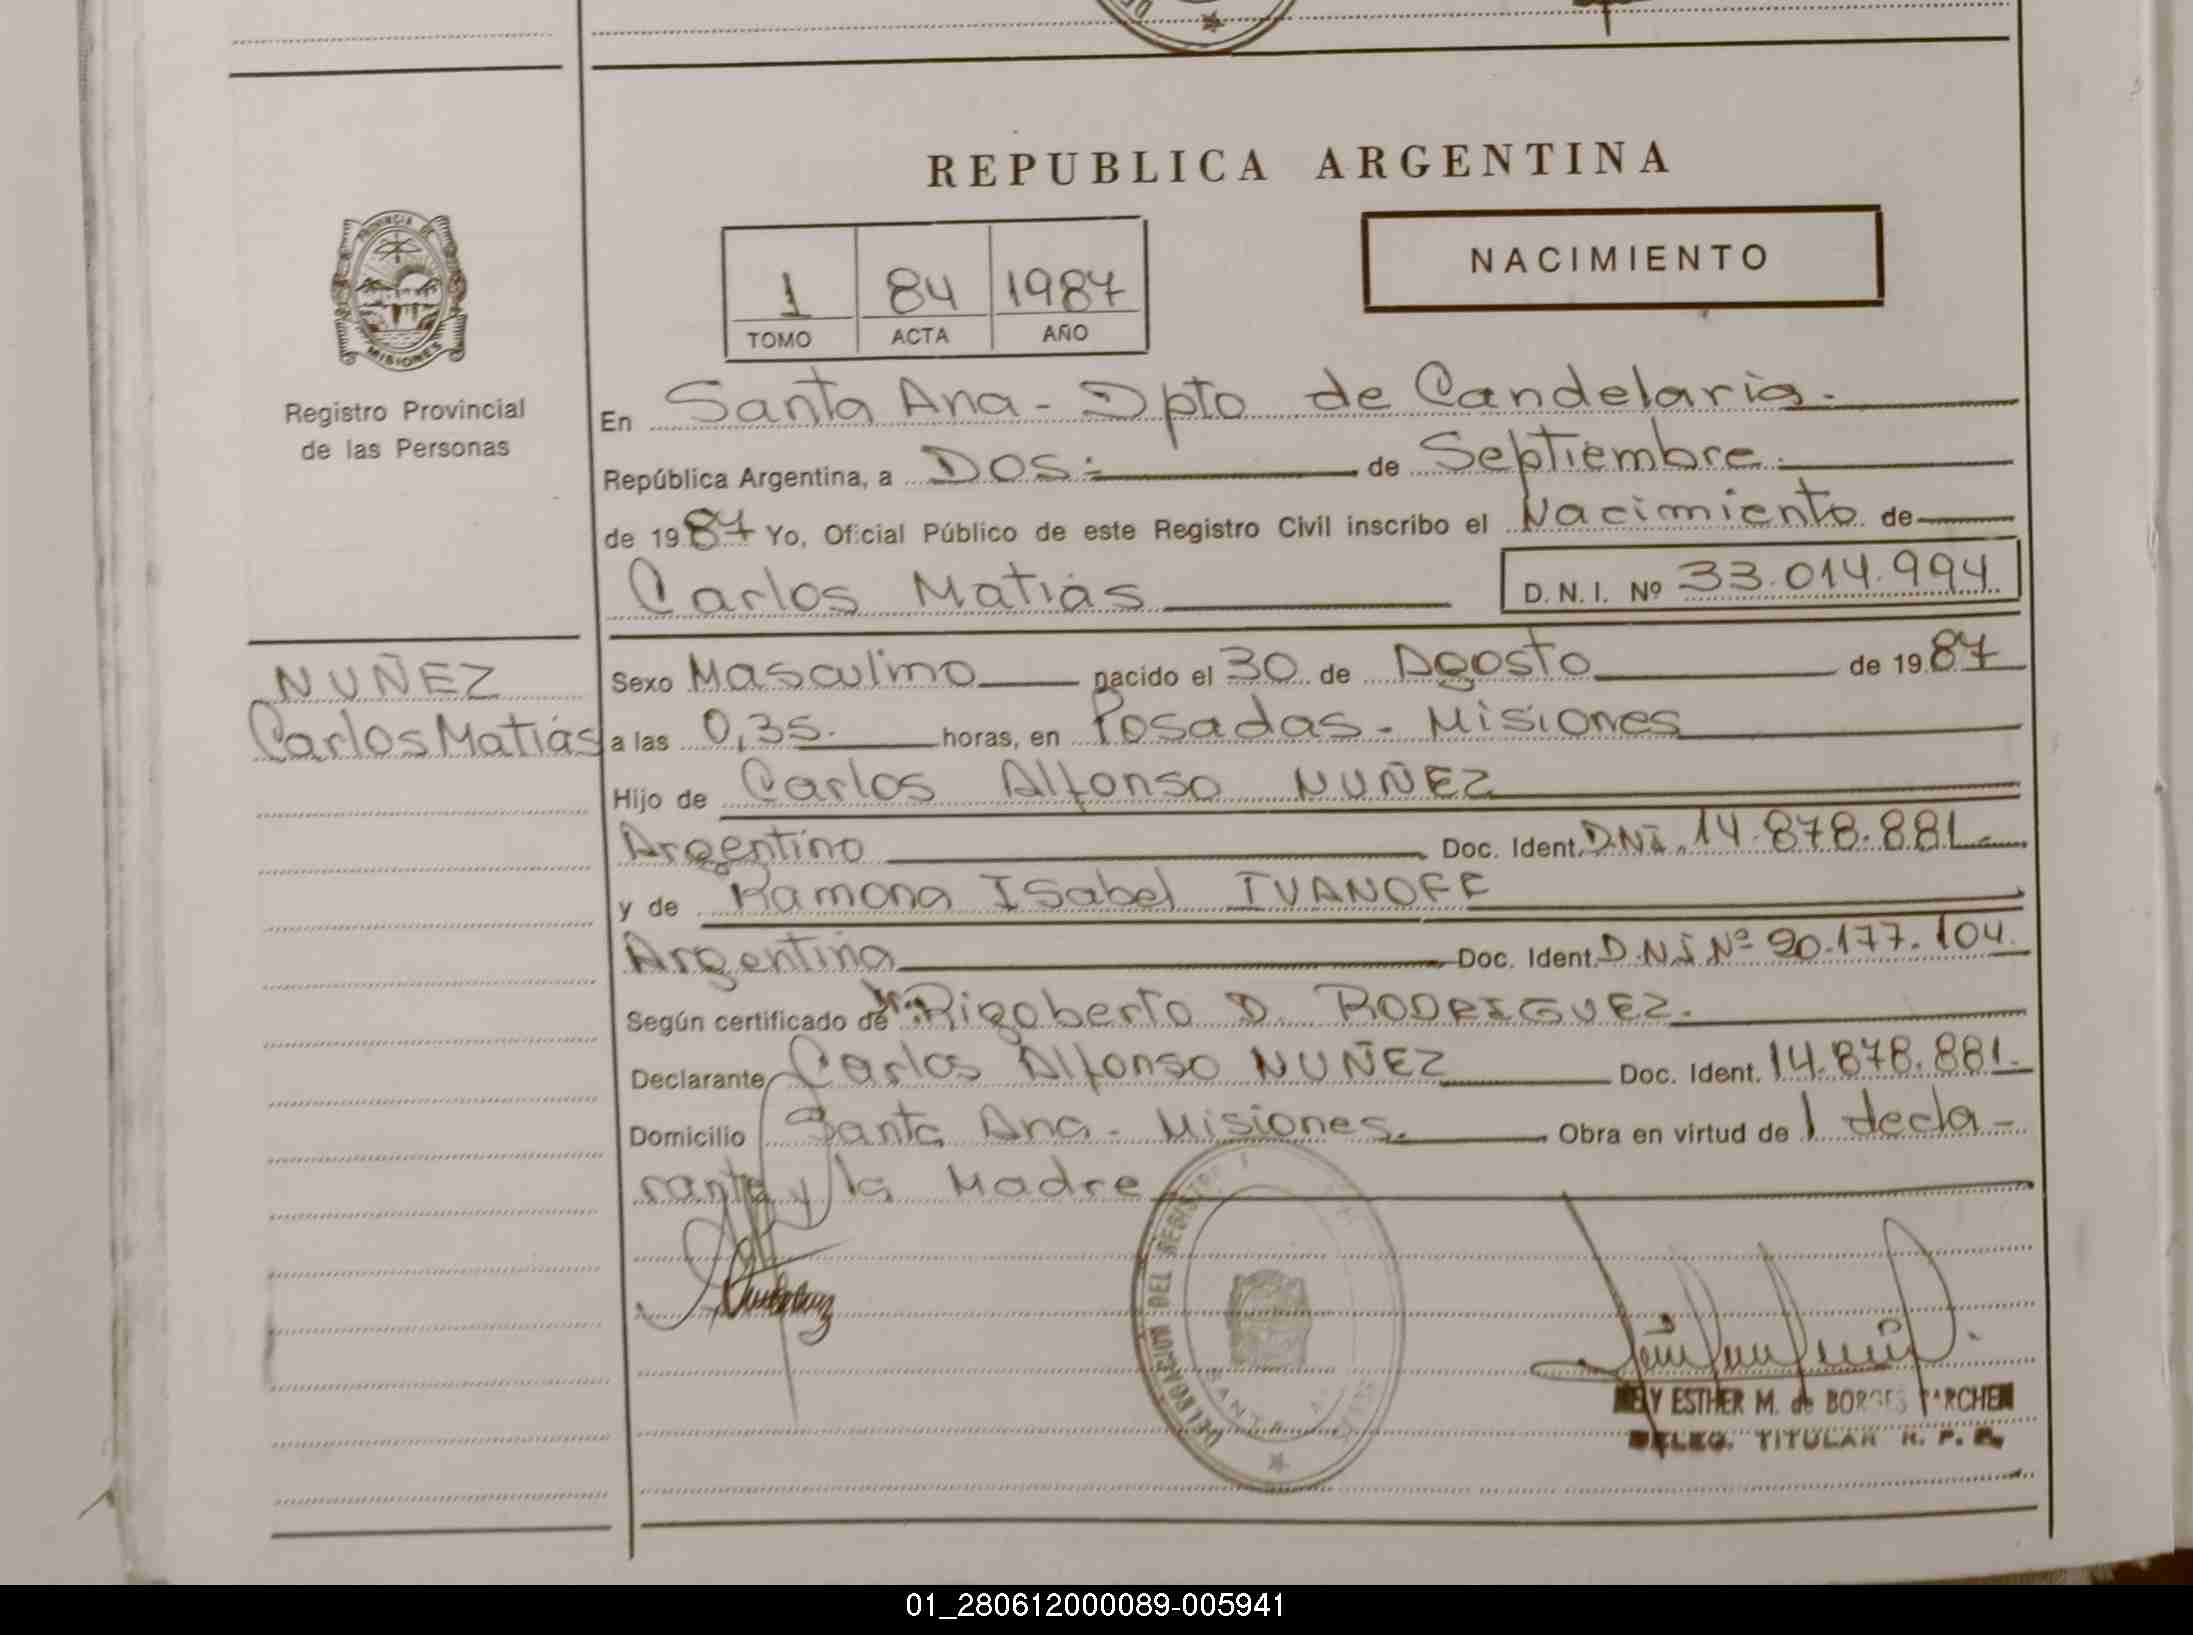 REPUBLICA ARGENTINA
NACIMIENTO
1 84 1987
TOMO ACTA AÑO
PROVINCIA DE
MISIONES
Registro Provincial
de las Personas
En Santa Ana - Dpto de Candelaria.
República Argentina, a DOS.- de Septiembre.
de 1987 Yo, Oficial Público de este Registro Civil inscribo el Nacimiento de
Carlos Matiás D. N. I. Nº 33.014.994
NUÑEZ
Carlos Matiás
Sexo Masculino nacido el 30 de Agosto de 1987
a las 0,35. horas, en Posadas - Misiones
Hijo de Carlos Alfonso NUÑEZ
Argentino Doc. Ident. D.N.I. 14.878.881.
y de Ramona Isabel IVANOFF
Argentina Doc. Ident. D.N.I Nº 20.177.104.
Según certificado de Rigoberto D. RODRIGUEZ.
Declarante Carlos Alfonso NUÑEZ Doc. Ident. 14.878.881.
Domicilio Santa Ana - Misiones. Obra en virtud de l decla-
rante y la Madre
DELEGACION DEL REGISTRO
SANTA
ESTHER M. de BORGES
TITULAR R. P. P.
01_280612000089-005941